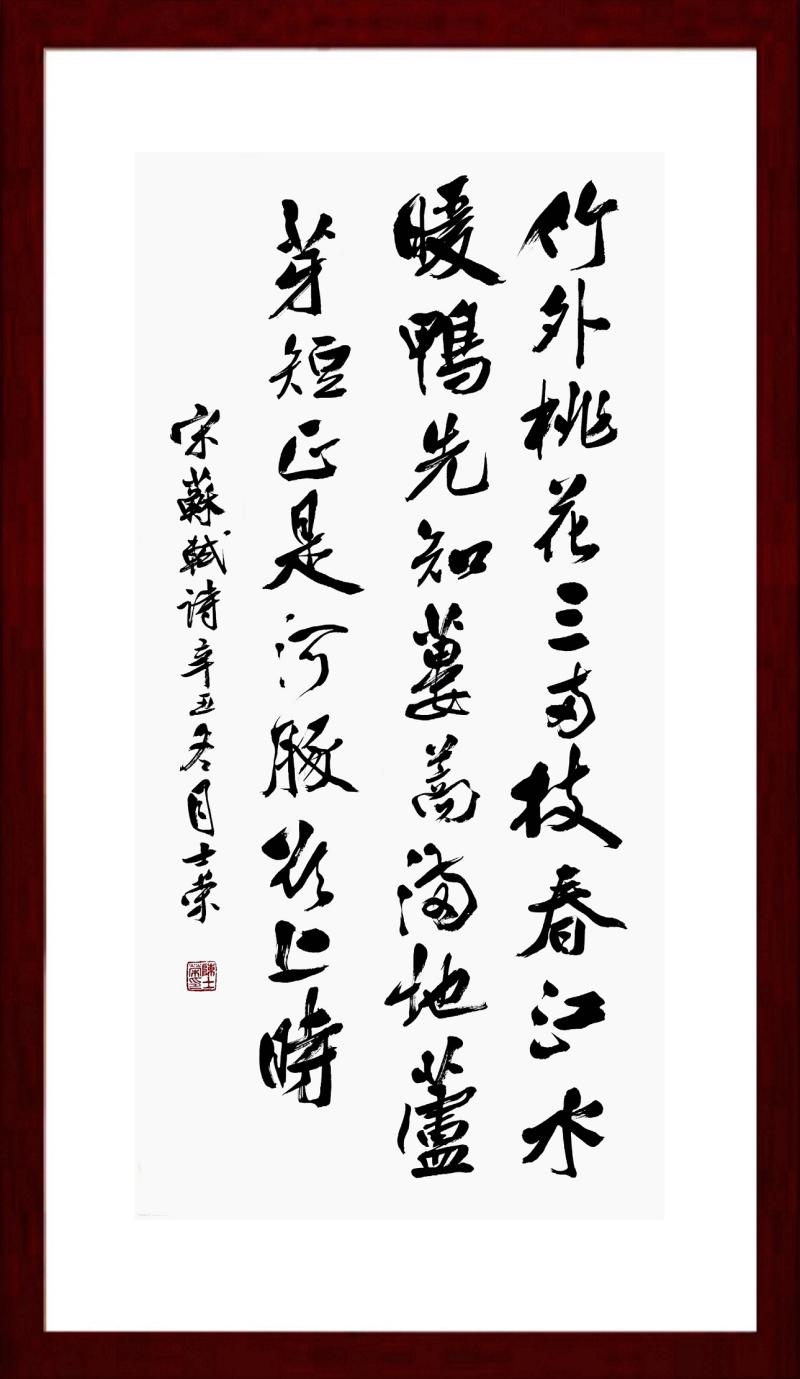 竹外桃花三両枝春江水
暖鴨先知蔞蒿满地蘆
芽短正是河豚欲上時
宋蘇軾诗辛丑冬月士荣
陳士荣印